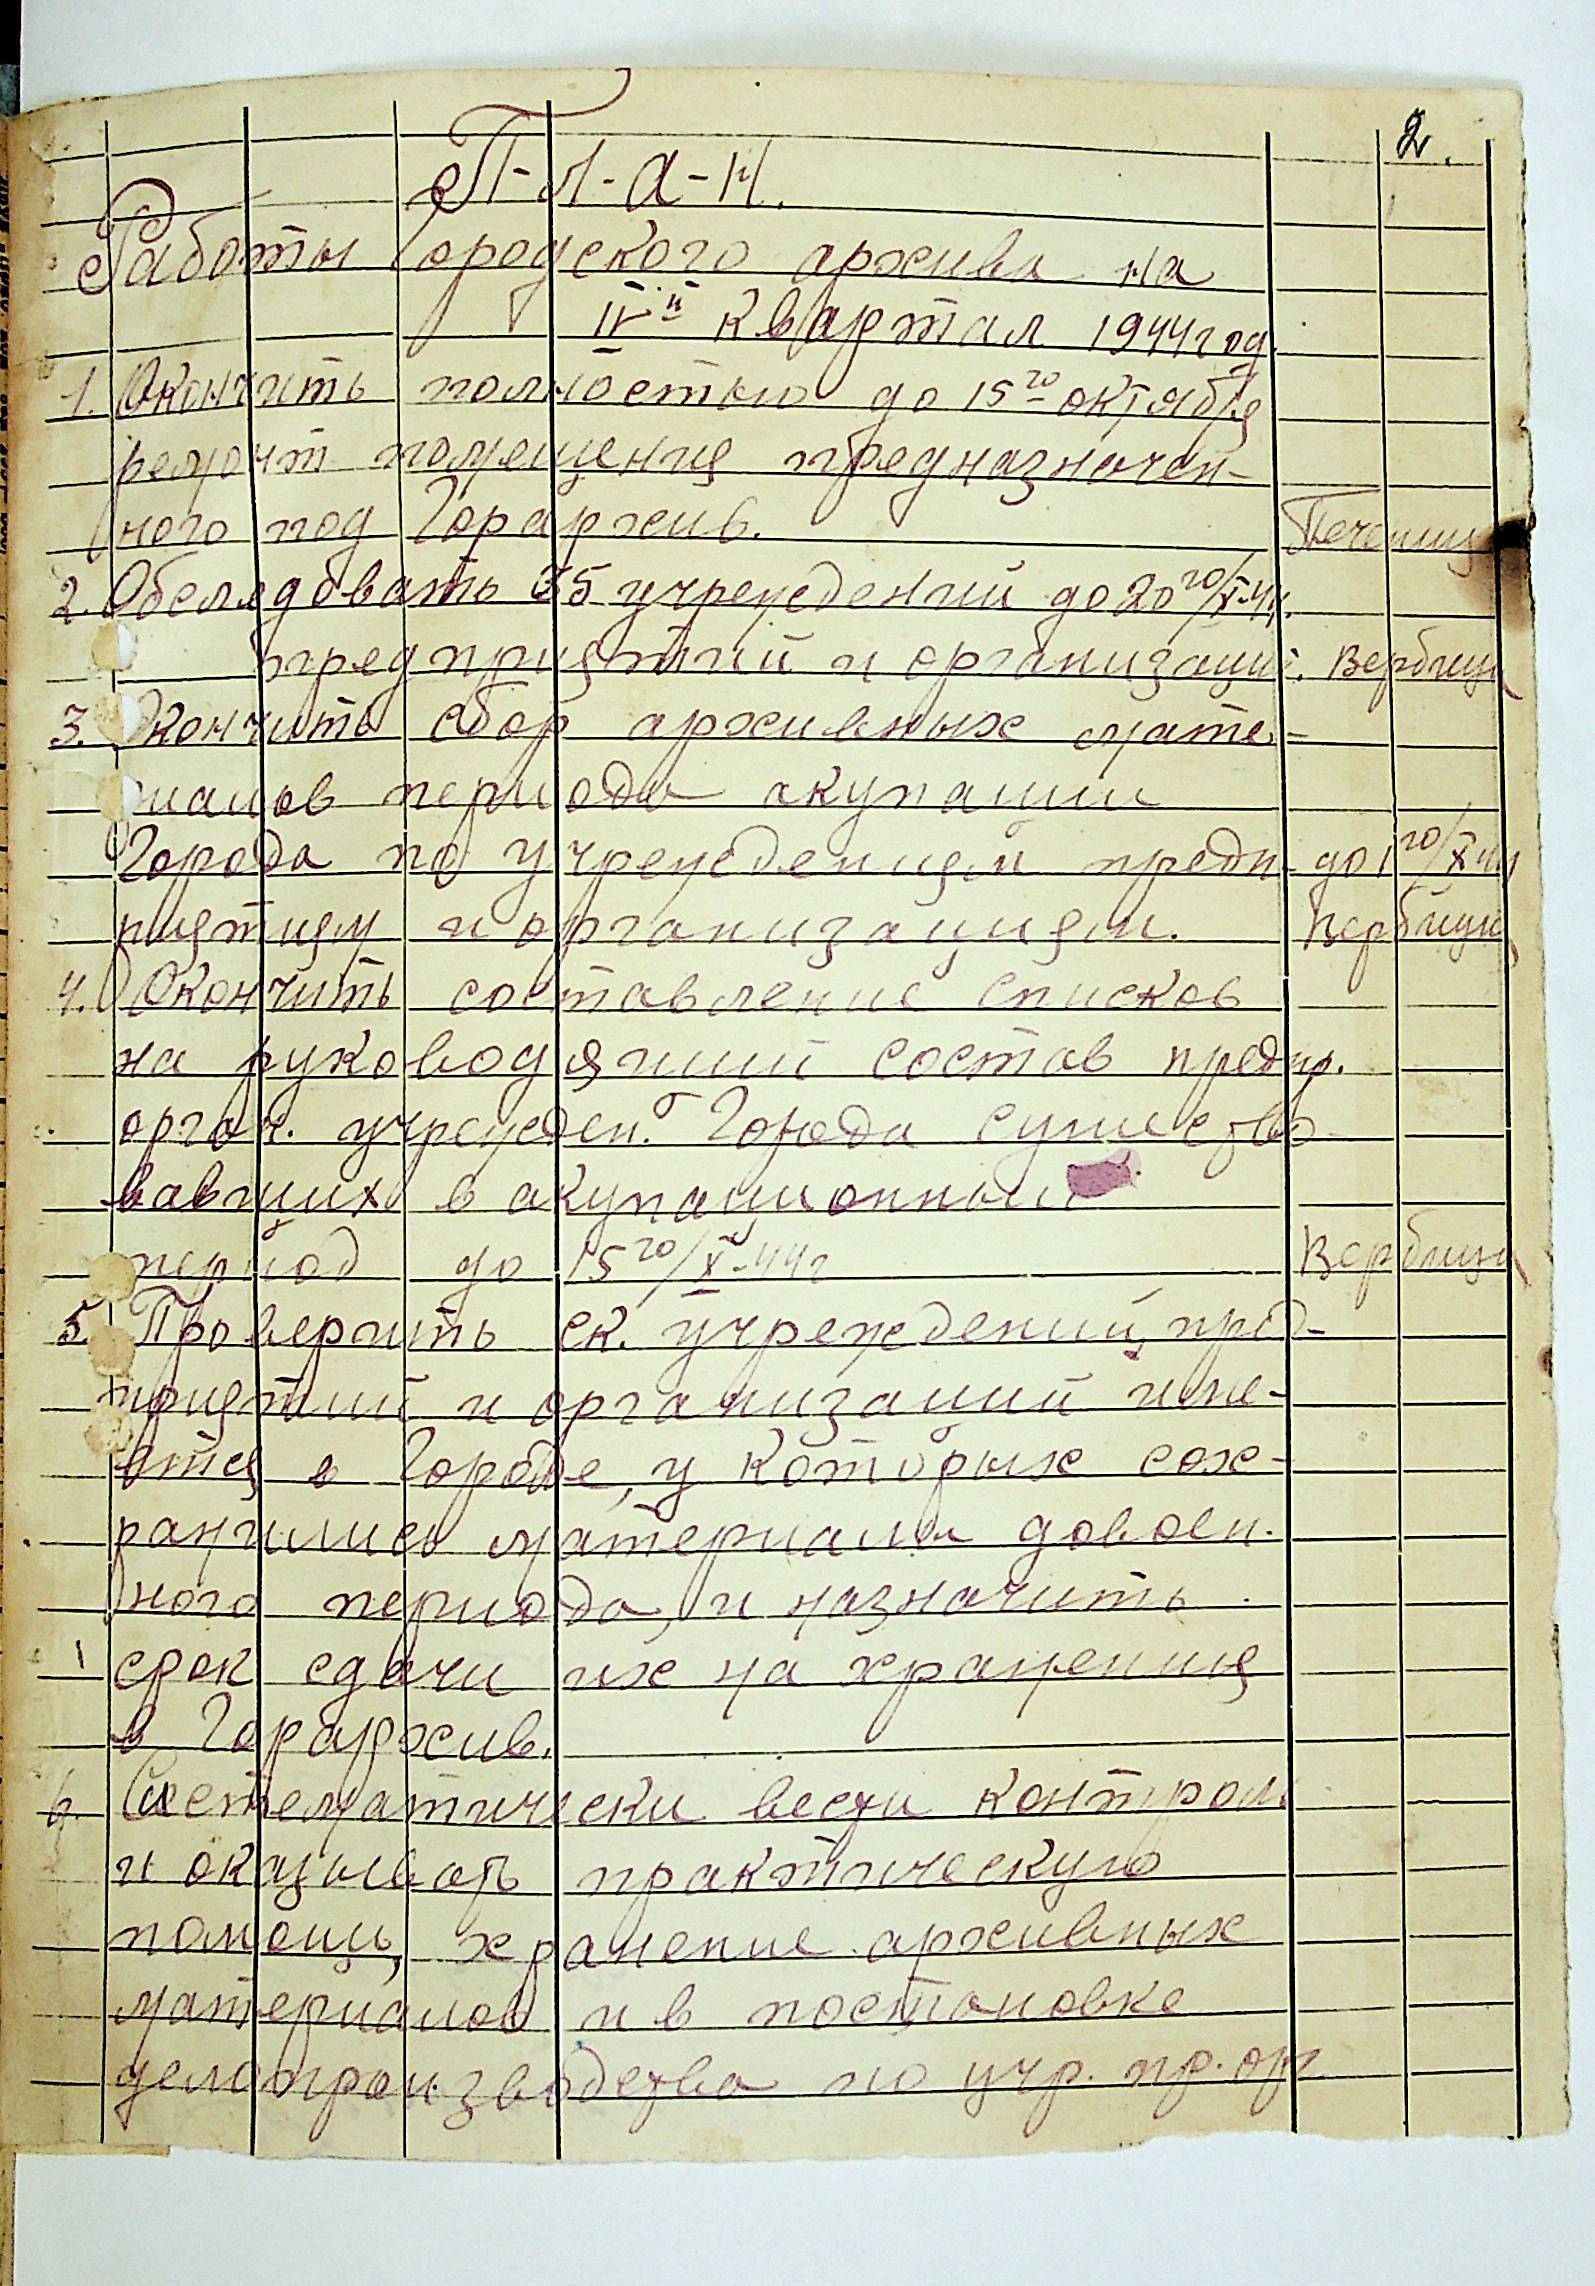 2.
П-л-а-н.
Работы Городского архива на
IV й квартал 1944 год.
1. Окончить полностью до 15го октября
ремонт помещения предназначен-
ного под Горархив.
2. Обследовать 35 учреждений до 20го/X-44.
предприятий и организаций. Вербицк
3. Окончить сбор архивных мате-
риалов периода акупации
Города по учреждениям предп- до 1го/X 44
риятиям и организациям. Вербицк
4. Окончить составление списков
на руководящий состав предпр.
орган. учрежден. Города существо
вавших в акупационный
период до 15го/X-44г Вербицк
5. Проверить ск. учреждений, пред-
приятий и организаций име-
ется в Городе, у которых сох-
ранились материалы довоен-
ного периода, и назначить
срок сдачи их на хранения
в Горархив.
6. Систематически вести контроль
и оказывать практическую
помощь, хранение архивных
материалов и в постановке
делопроизводства по учр. пр. орг.